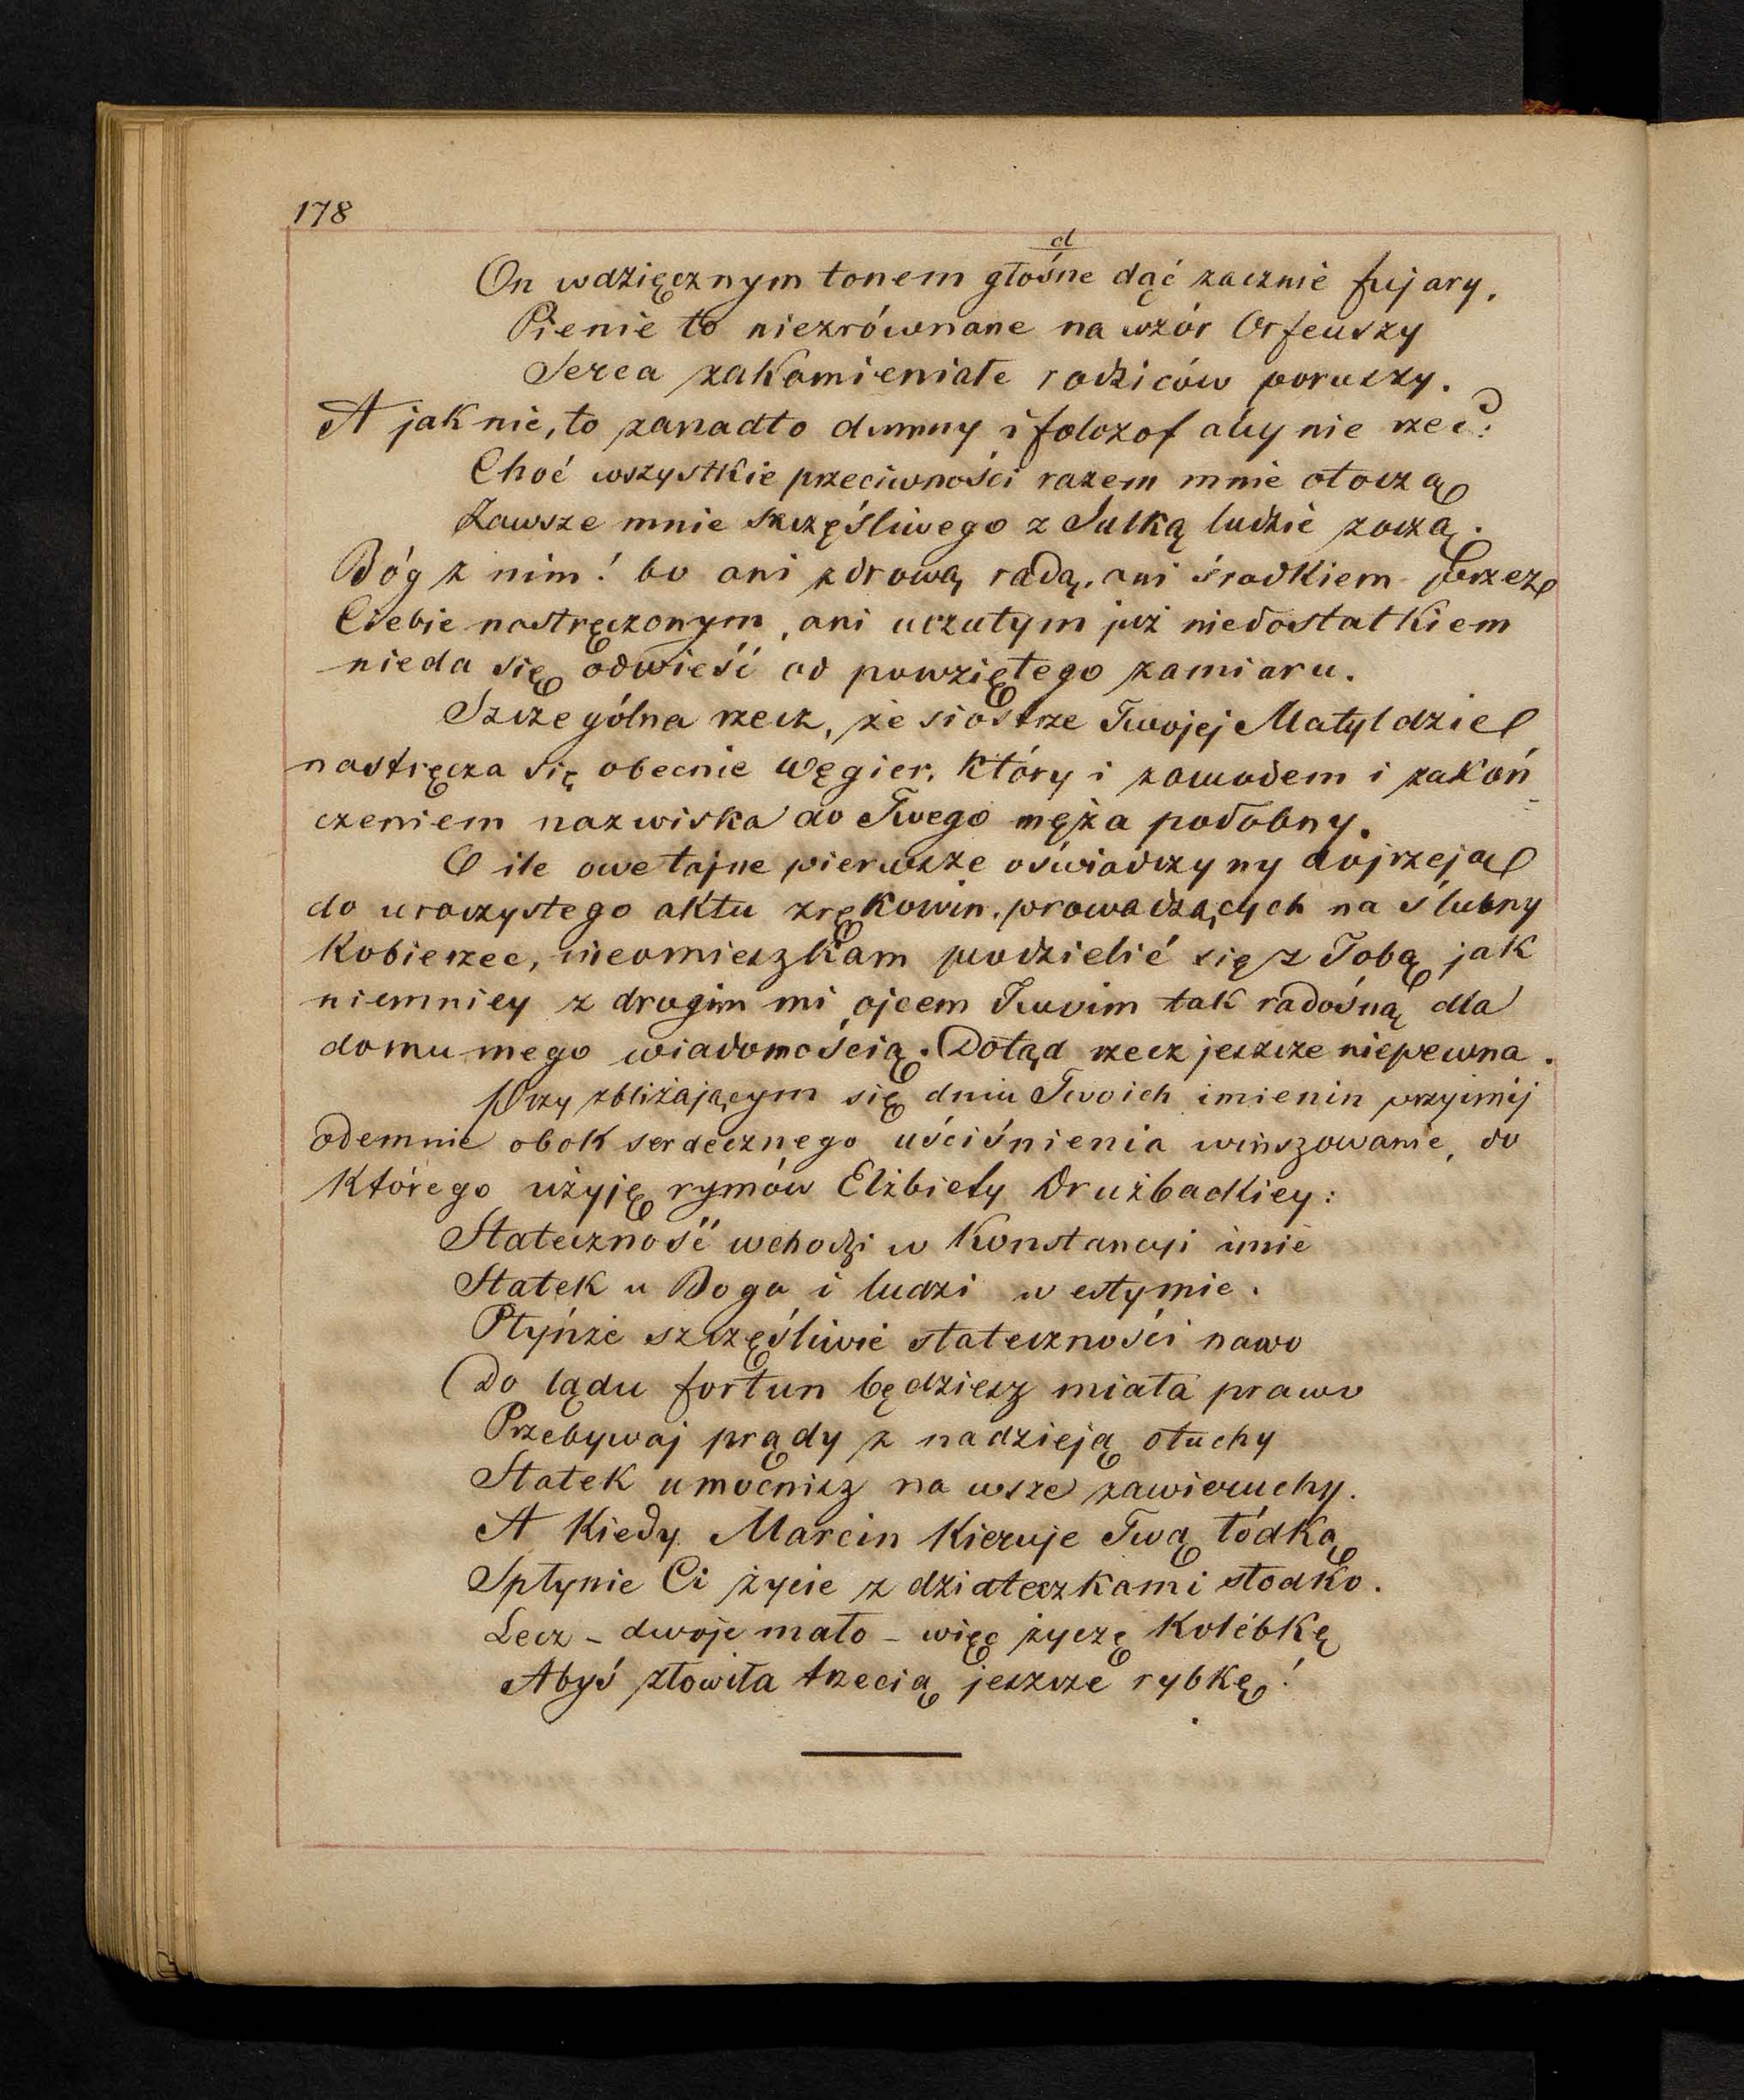 178
d
On wdzięcznym tonem głośne dąć zacznie fujary,
Pienie to niezrównane na wzór Orfeuszy
Serca zakamieniałe rodziców poruszy.
A jak nie, to zanadto dumny i folozof aby nie rzec:
Choć wszystkie przeciwności razem mnie otoczą
Zawsze mnie szczęśliwego z Julką ludzie zoczą.
Bóg z nim! bo ani zdrową radą, ani środkiem przez
Ciebie nastręczonym, ani uczutym już niedostatkiem
nieda się odwieść od powziętego zamiaru.
Szczególna rzecz, że siostrze Twojej Matyldzie
nastręcza się obecnie Węgier, który i zawodem i zakoń
czeniem nazwiska do Twego męża podobny.
O ile owe tajne pierwsze oświadczyny dojrzeją
do uroczystego aktu zrękowin, prowadzących na ślubny
kobierzec, nieomieszkam podzielić się z Tobą jak
niemniey z drugim mi ojcem Twoim tak radośną dla
domu mego wiadomością. Dotąd rzecz jeszcze niepewna.
Przy zbliżającym się dniu Twoich imienin przyimij
odemnie obok serdecznego uściśnienia winszowanie, do
którego użyję rymów Elżbiety Drużbackiey:
Stateczność wchodzi w Konstancyi imie
Statek u Boga i ludzi w estymie.
Płyńże szczęśliwie stateczności nawo
Do lądu fortun będziesz miała prawo
Przebywaj prądy z nadzieją otuchy
Statek umocnisz na wsze zawieruchy.
A kiedy Marcin kieruje Twą łódką
Spłynie Ci życie z dziateczkami słodko.
Lecz - dwoje mało - więc życzę kolébkę
Abyś złowiła trzecią jeszcze rybkę!